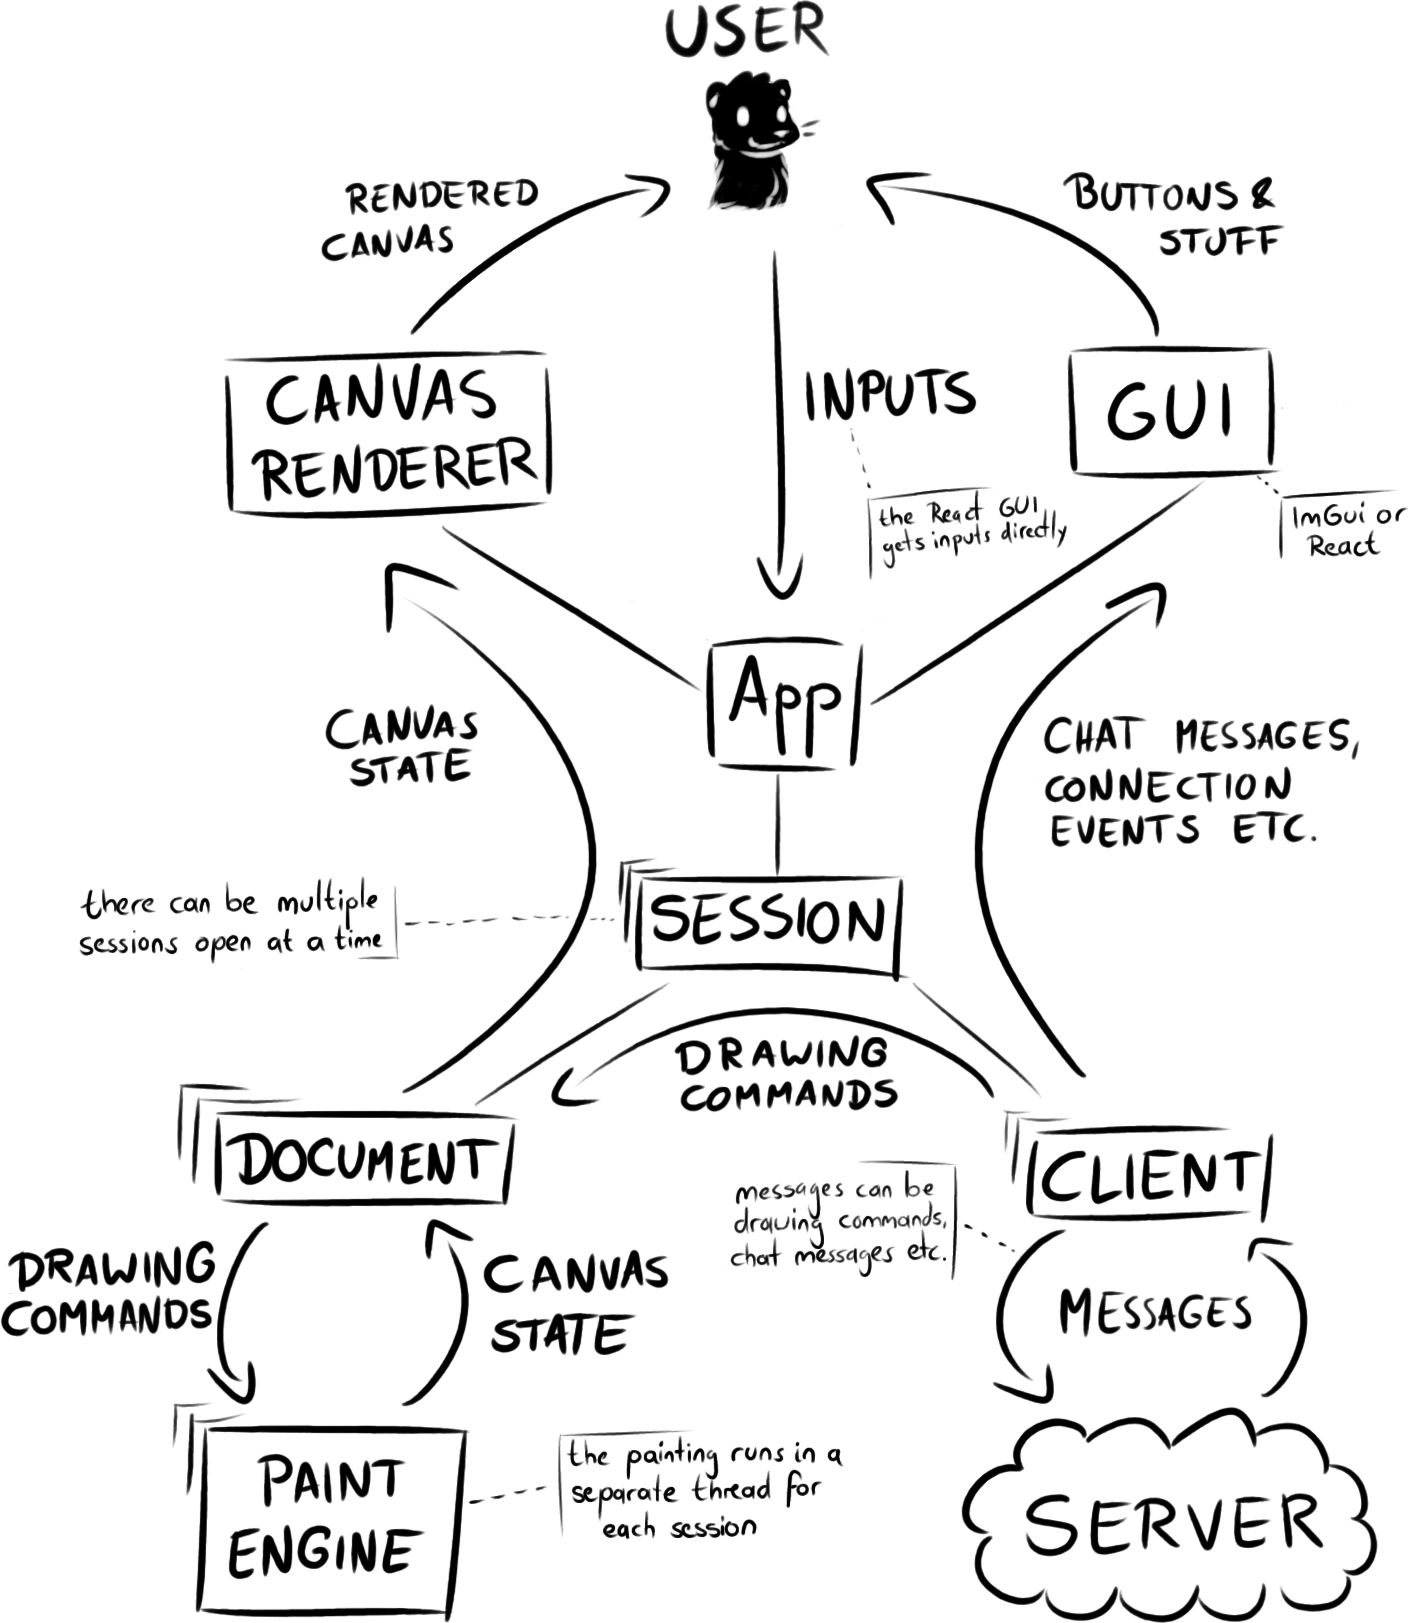 USER
RENDERED
CANVAS
BUTTONS &
STUFF
CANVAS
RENDERER
INPUTS
GUI
the React GUI
gets inputs directly
ImGui or
React
App
CANVAS
STATE
CHAT MESSAGES,
CONNECTION
EVENTS ETC.
there can be multiple
sessions open at a time
SESSION
DRAWING
COMMANDS
DOCUMENT
CLIENT
messages can be
drawing commands,
chat messages etc.
DRAWING
COMMANDS
CANVAS
STATE
MESSAGES
PAINT
ENGINE
the painting runs in a
separate thread for
each session
SERVER